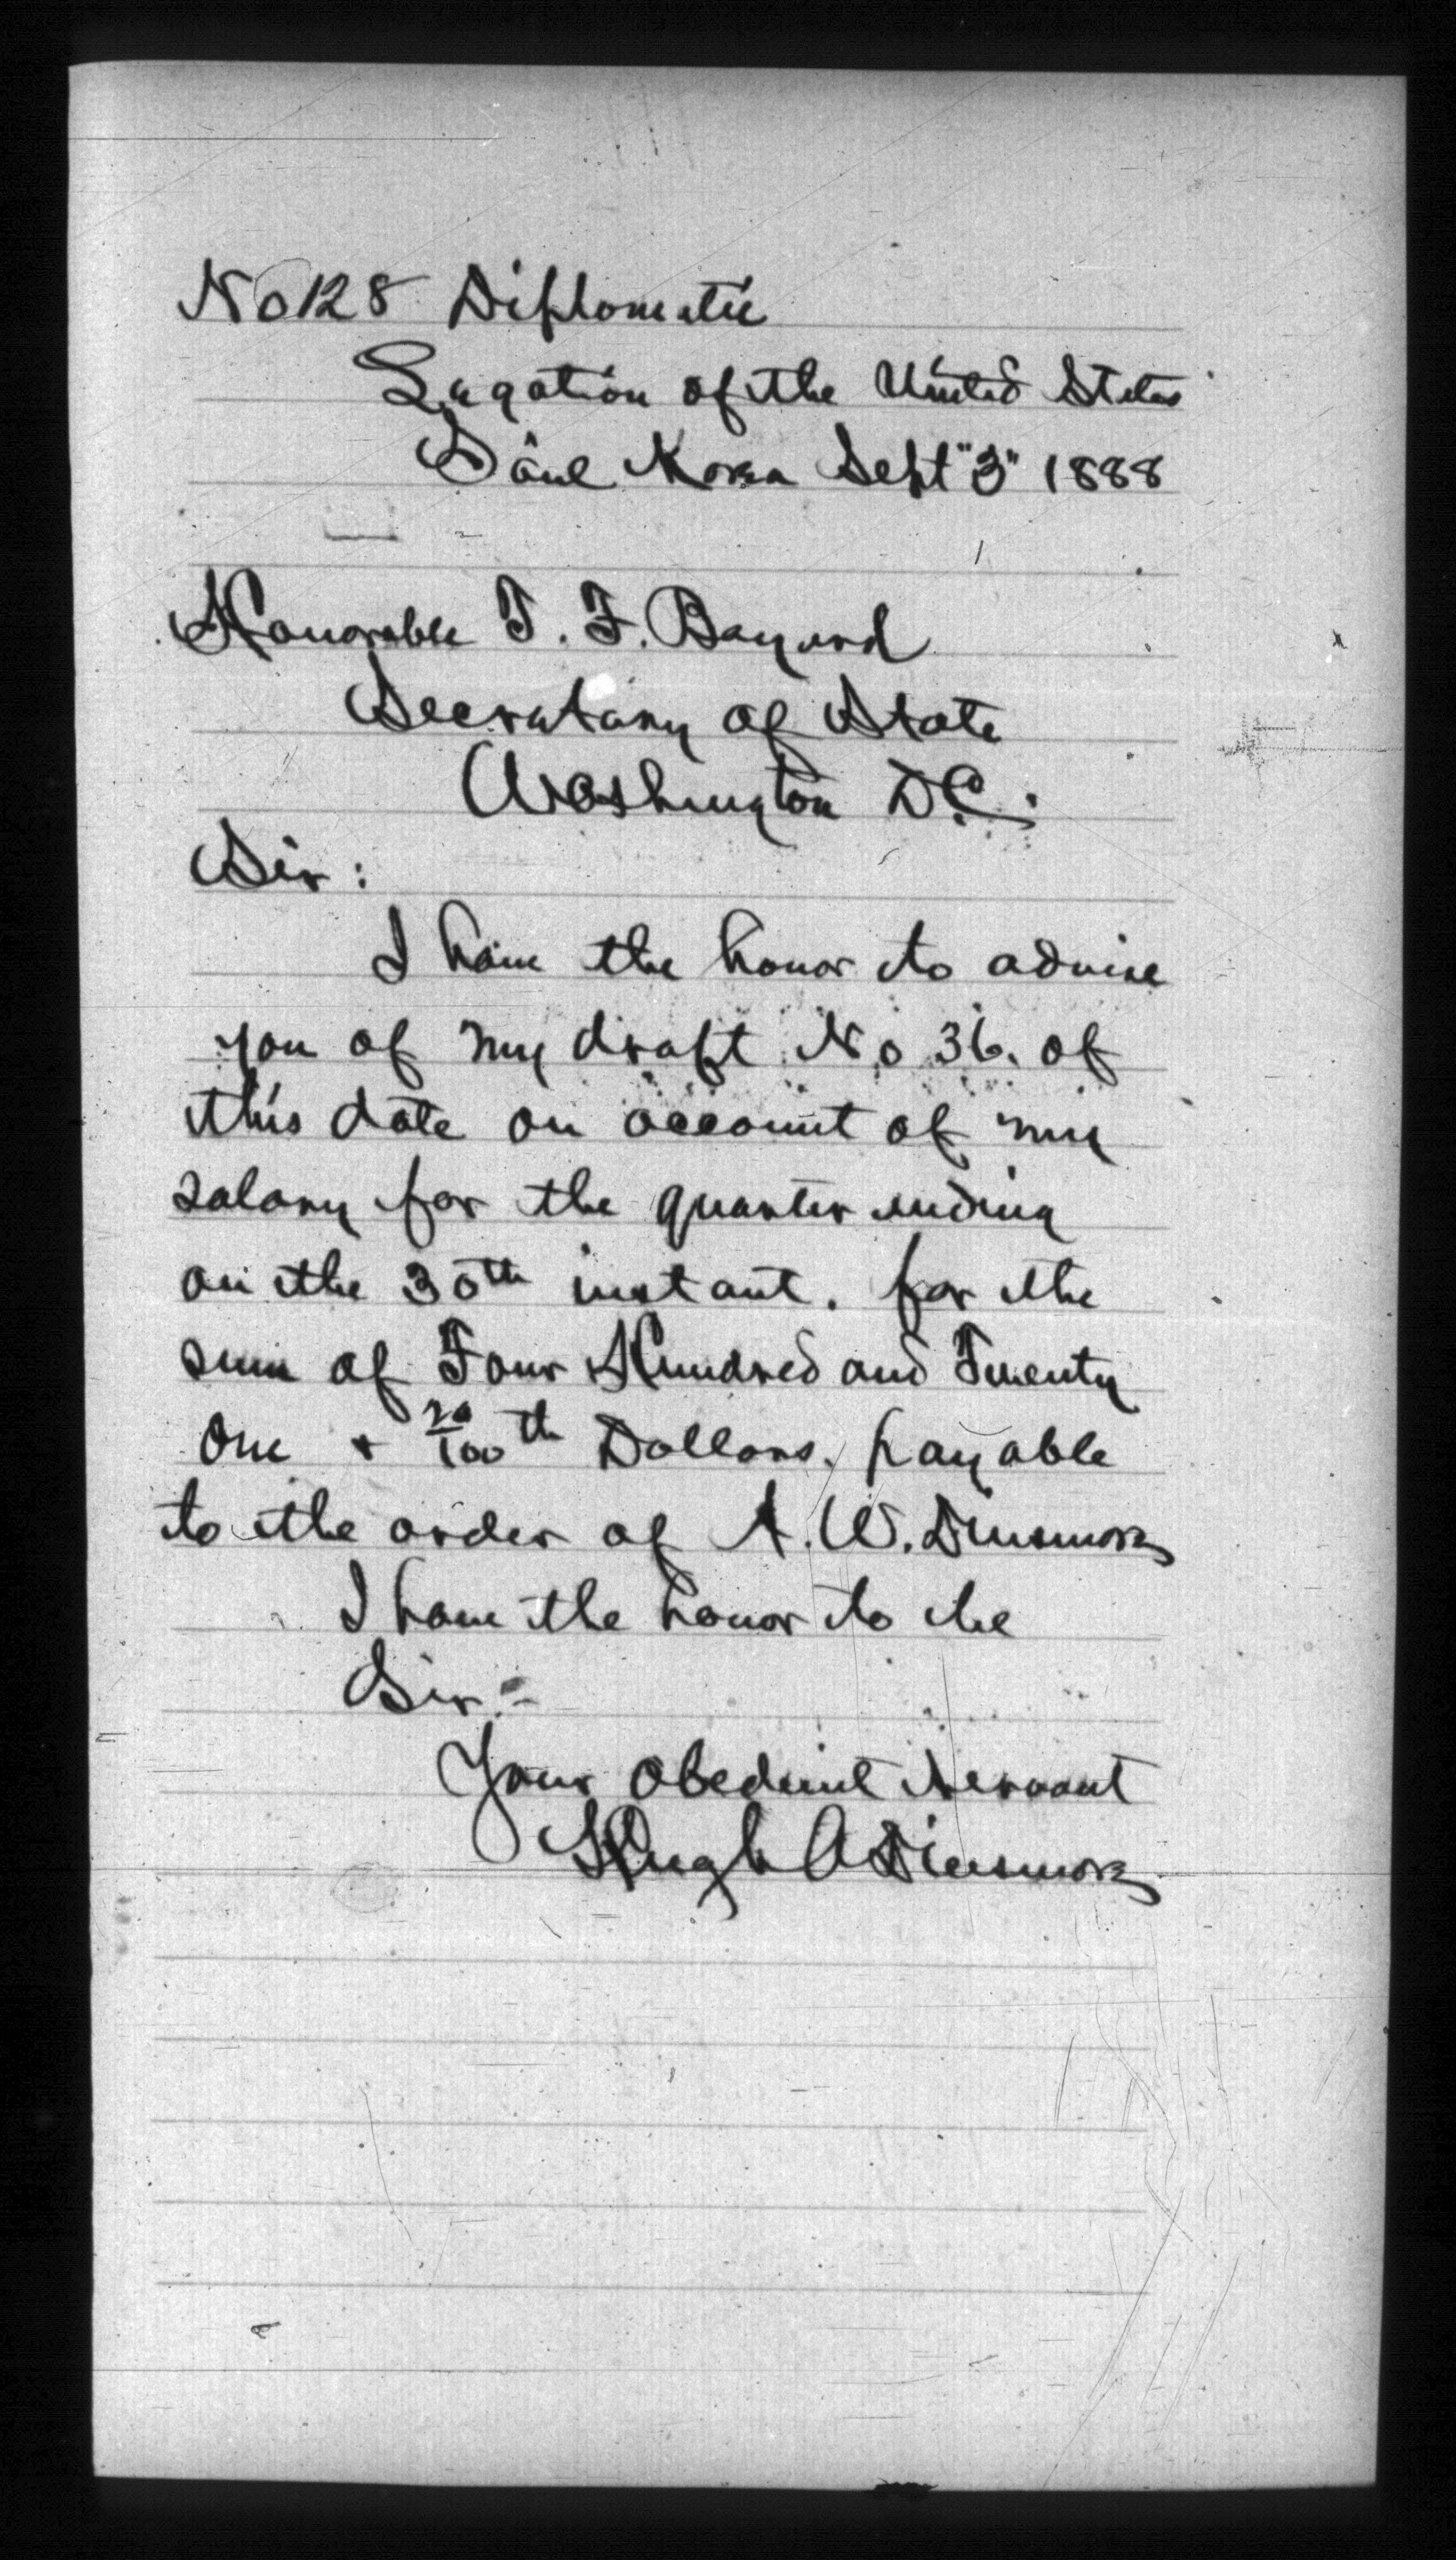 No 128 Diplomatic
Legation of the United States
Söul Korea Sept "3" 1888
Honorable T. F. Bayard
Secretary of State
Washington D.C.
Sir:
I have the honor to advise
you of my draft No 36. of
this date on account of my
salary for the quarter ending
on the 30th instant. for the
sum of Four Hundred and Twenty
One & /100th Dollars, payable
to the order of A. W. Dinsmore
I have the honor to be
Sir:-
Your Obedient Servant
Hugh A Dinsmore